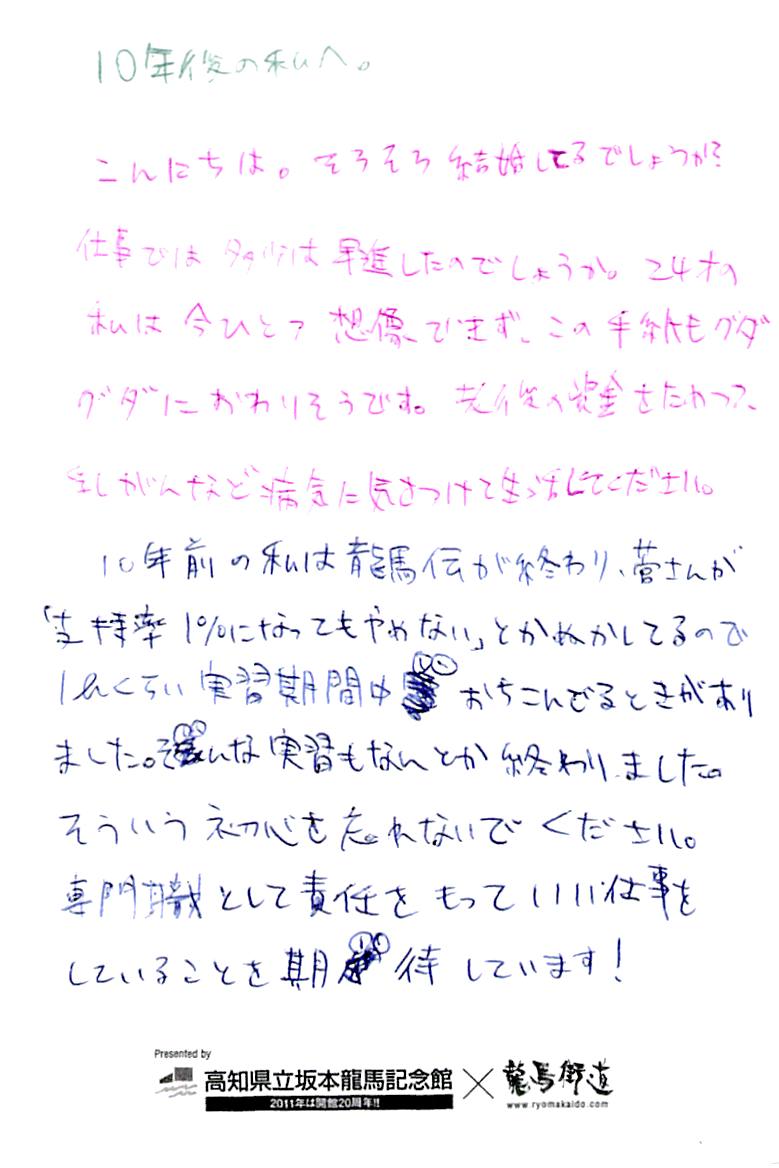 10年後の私へ。
こんにちは。そろそろ結婚してるでしょうか?
仕事では多少は昇進したのでしょうか。24才の
私は今ひとつ想像できず、この手紙もグダ
グダにおわりそうです。老後の資金をためつつ、
乳がんなど病気に気をつけて生活してください。
10年前の私は龍馬伝が終わり、菅さんが
「支持率1%になってもやめない」とかぬかしてるので
1人くらい実習期間中おちこんでるときがあり
ました。そんな実習もなんとか終わりました。
そういう初心を忘れないでください。
専門職として責任をもっていい仕事を
していることを期待しています!
Presented by
高知県立坂本龍馬記念館×龍馬街道
2011年は開館20周年!!
www.ryomakaido.com